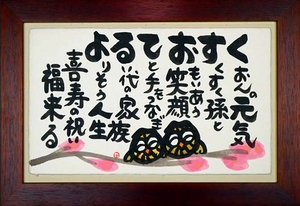 くおんの元気
すくすく孫と
おもいあう笑顔
てと手をつなぎ
るい代の家族
よりそう人生
喜寿の祝い
福来る